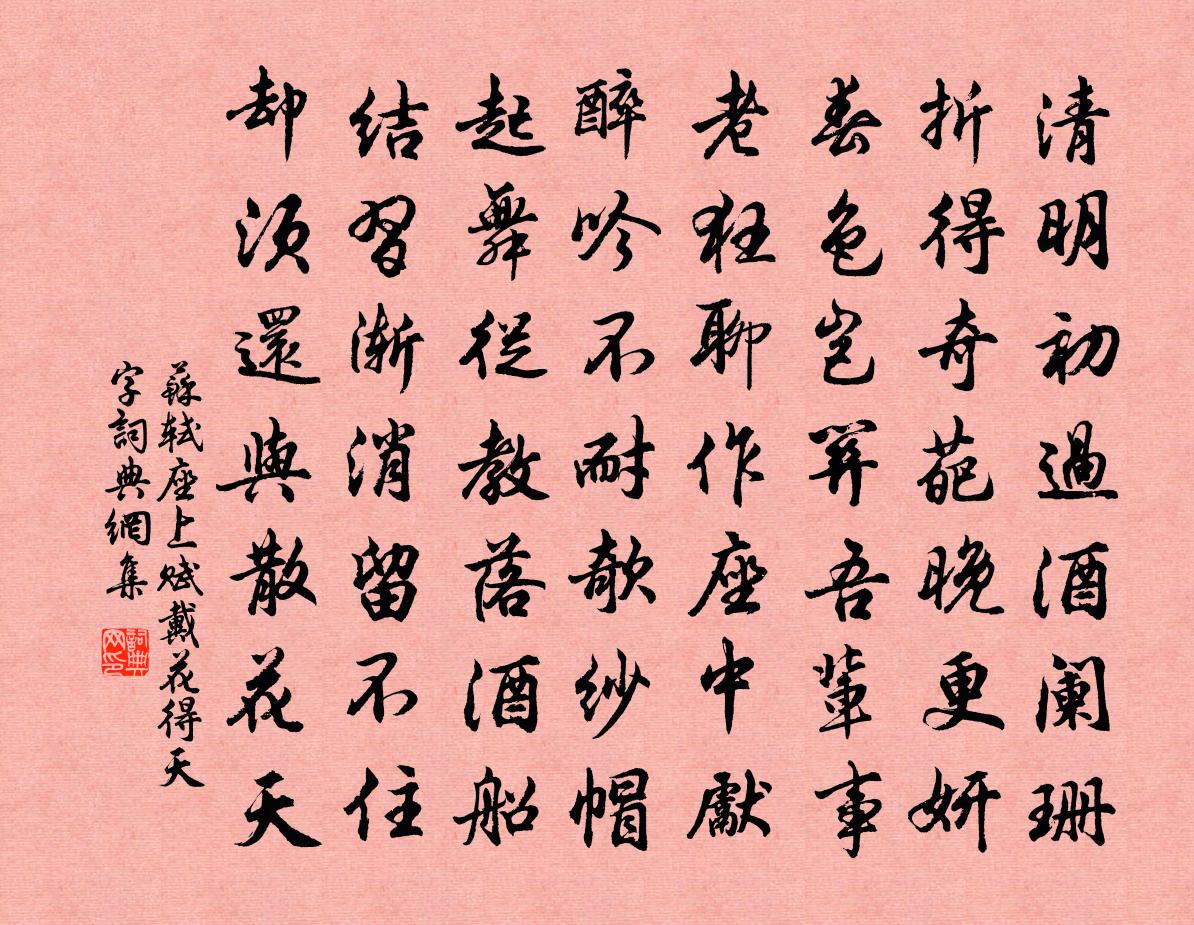 清明初過酒闌珊
折得奇葩晚更妍
春色豈關吾輩事
老狂聊作座中獻
醉吟不耐欹紗帽
起舞從教落酒船
結習漸消留不住
却須還與散花天
蘇軾座上賦戴花得天
字詞典網集
詞典
网印